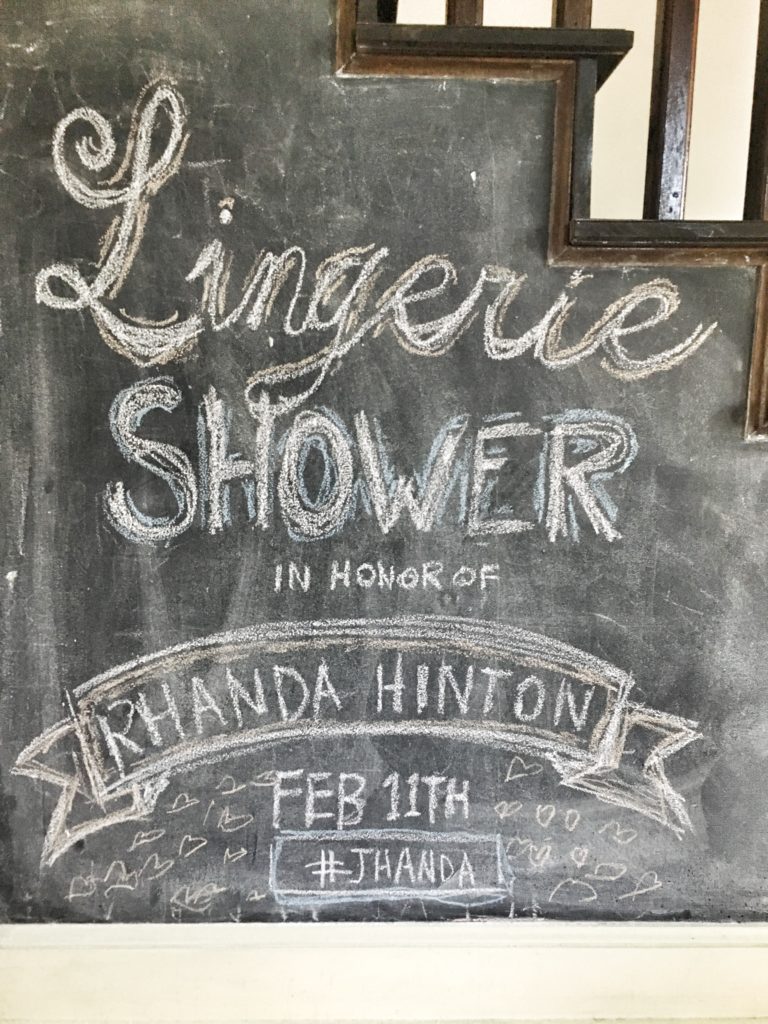 Lingerie
SHOWER
IN HONOR OF
RHANDA HINTON
FEB 11TH
#JHANDA